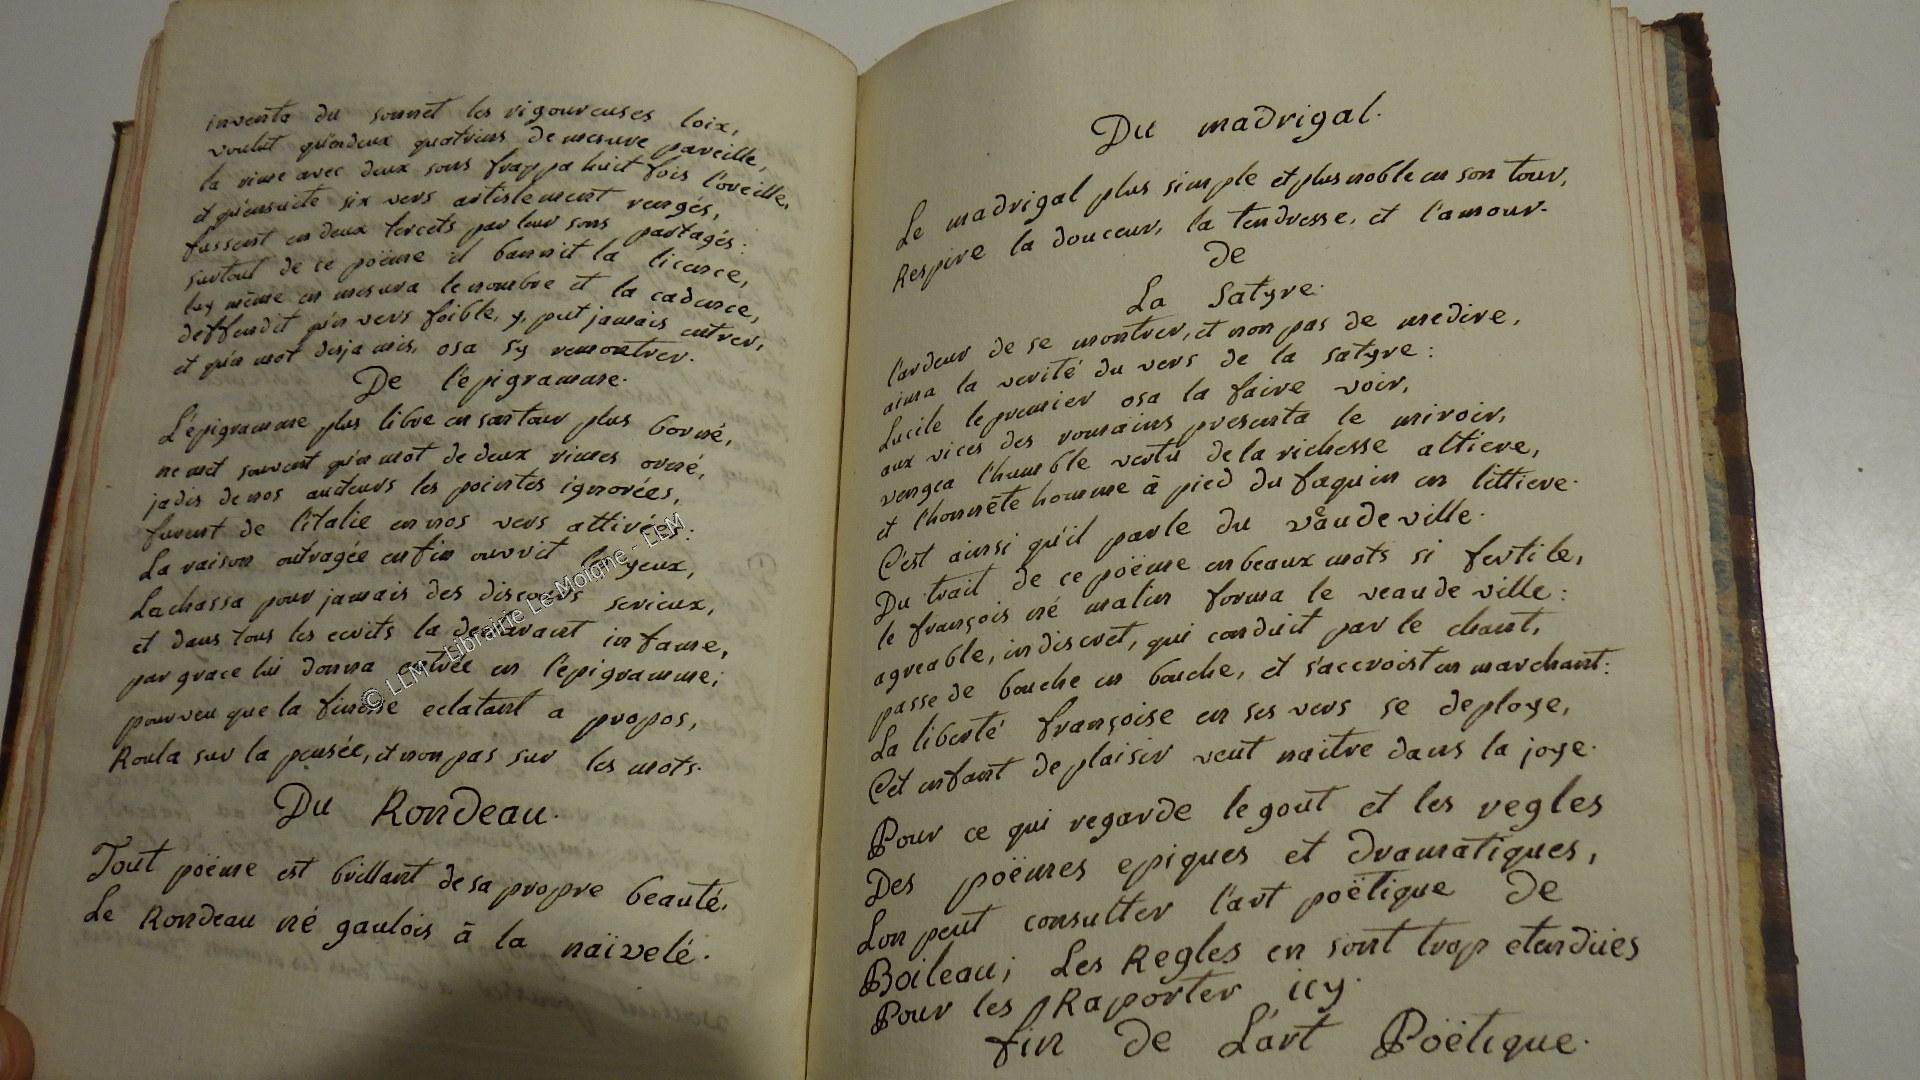 inventa du sonnet les rigoureuses loix,
voulut qu'endeux quatrins de mesure pareille,
la rime avec deux sons frappa huit fois l'oreille,
et qu'ensuite six vers artistement rengés,
fussent en deux tercets par leur sens partagés:
surtout de ce poëme il bannit la licence,
luy même en mesura le nombre et la cadence,
deffendit q'un vers foible, y, put jamais entrer,
et q'un mot desja mis, osa s'y remontrer.
De l'epigramme.
L'epigramme plus libre en son tour plus borné,
ne met souvent q'un mot de deux rimes orné,
jadis de nos auteurs les pointes ignorées,
furent de l'italie en nos vers attirées:
La raison outragée enfin ouvrit les yeux,
La chassa pour jamais des discours serieux,
et dans tous les ecrits la declarant infame,
par grace lui donna entrée en l'epigramme;
pourveu que la finesse eclatant a propos,
Roula sur la pensée, et non pas sur les mots.
Du Rondeau.
Tout poëme est brillant de sa propre beauté,
Le Rondeau né gaulois à la naïveté.
© LEM - Librairie Le Moigne - LEM
Du madrigal.
Le madrigal plus simple et plus noble en son tour,
Respire la douceur, la tendresse, et l'amour.
De
La Satyre.
l'ardeur de se montrer, et non pas de medire,
aima la verité du vers de la satyre:
Lucile le premier osa la faire voir,
aux vices des romains presenta le miroir,
vengea l'humble vertu de la richesse altiere,
et l'honnête homme à pied du faquin en littiere.
C'est ainsi qu'il parle du vaudeville.
Du trait de ce poëme en beaux mots si fertile,
le françois né malin forma le veaudeville:
agreable, indiscret, qui conduit par le chant,
passe de bouche en bouche, et s'accroist en marchant:
La liberté françoise en ses vers se deploye,
Cet enfant de plaisir veut naitre dans la joye.
Pour ce qui regarde le gout et les regles
Des poëmes epiques et dramatiques,
Lon peut consulter l'art poëtique de
Boileau; Les Regles en sont trop etendües
Pour les Raporter icy.
fin de L'art Poëtique.